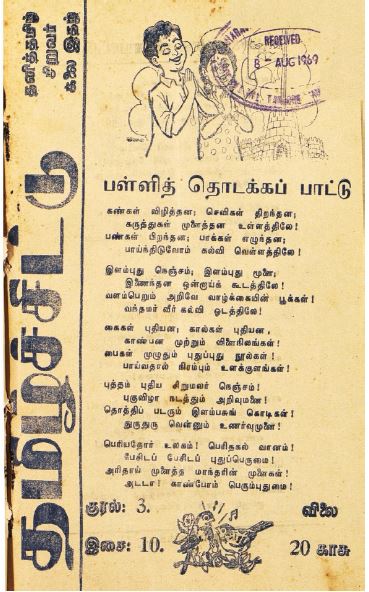 தனித்தமிழ்ச்
சிறுவர்
கலை இதழ்
தமிழ்ச்சிட்டு
RECEIVED
8 - AUG 1969
பள்ளித் தொடக்கப் பாட்டு
கண்கள் விழித்தன; செவிகள் திறந்தன;
கருத்துகள் முளைத்தன உள்ளத்திலே!
பண்கள் பிறந்தன; பாக்கள் எழுந்தன;
பாய்ந்திடுவோம் கல்வி வெள்ளத்திலே!
இளம்புது நெஞ்சம்; இளம்புது மூளை;
இணைந்தன ஒன்றாய்க் கூடத்திலே!
வளம்பெறும் அறிவே வாழ்க்கையின் பூக்கள்!
வந்தமர் வீர் கல்வி ஓடத்திலே!
கைகள் புதியன; கால்கள் புதியன,
காண்பன முற்றும் விளைநிலங்கள்!
பைகள் முழுதும் புதுப்புது நூல்கள்!
பாய்வதால் நிரம்பும் உளக்குளங்கள்!
புத்தம் புதிய சிறுமலர் நெஞ்சம்!
புகுவிழா நடத்தும் அறிவுமணை!
தொத்திப் படரும் இளம்பசுங் கொடிகள்!
துருதுரு வென்னும் உணர்வுமுனை!
பெரியதோர் உலகம்! பெரிதகல் வானம்!
பேசிடப் பேசிடப் புதுப்பெருமை!
அரிதாய் முளைத்த மாந்தரின் முளைகள்!
அடடா! காண்போம் பெரும்புதுமை!
குரல்: 3.
விலை
இசை: 10.
20 காசு